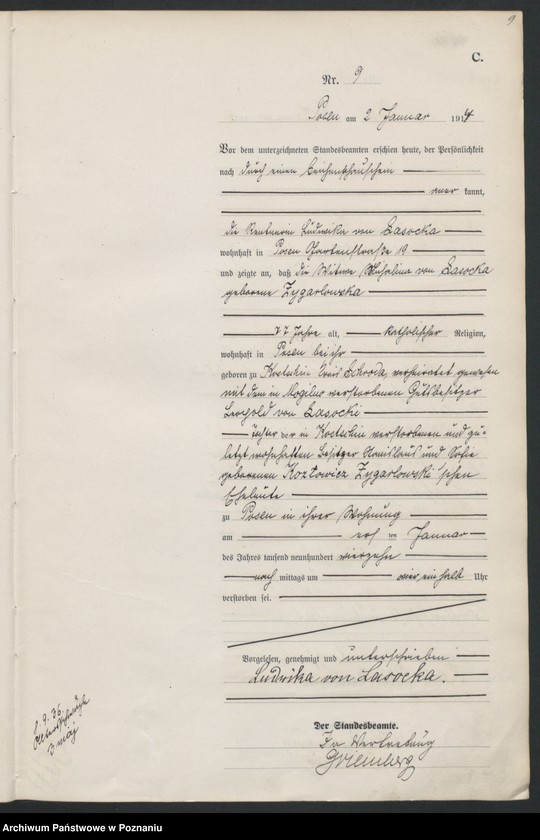 9
C.
Nr. 9
Posen am 2 Januar 1914
Vor dem unterzeichneten Standesbeamten erschien heute, der Persönlichkeit
nach durch einen
kannt,
die Rentnerin Ludwika von Lasocka
wohnhaft in Posen Gartenstraße 19
und zeigte an, daß die Witwe Michalina von Lasocka
geborene Zygarlowska
77 Jahre alt, katholischer Religion,
wohnhaft in Posen bei ihr
geboren zu Kostschin Kreis Schroda, verheiratet gewesen
mit dem in Mogilno verstorbenen Gutsbesitzer
Leopold von Lasocki
Tochter der in Kostschin verstorbenen und zu-
letzt wohnhaften Besitzer Stanislaus und Sofie
geborenen Kozłowicz Zygarlowski'schen
Eheleute
zu Posen in ihrer Wohnung
am ersten Januar
des Jahres tausend neunhundert vierzehn
nach mittags um ein halb Uhr
verstorben sei.
Vorgelesen, genehmigt und unterschrieben
Ludwika von Lasocka.
Der Standesbeamte.
In Vertretung
9.36.
3 maj
Archiwum Państwowe w Poznaniu